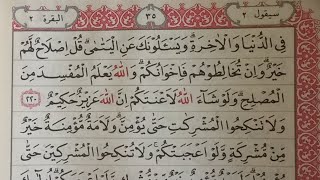 سيقول ٢ ٣٥ البقرة ٢
فِي الدُّنْيَا وَالْاٰخِرَةِ ؕ وَيَسْـَٔلُوْنَكَ عَنِ الْيَتٰمٰى ؕ قُلْ اِصْلَاحٌ لَّهُمْ
خَيْرٌ ؕ وَاِنْ تُخَالِطُوْهُمْ فَاِخْوَانُكُمْ ؕ وَاللّٰهُ يَعْلَمُ الْمُفْسِدَ مِنَ
الْمُصْلِحِ ؕ وَلَوْ شَآءَ اللّٰهُ لَاَعْنَتَكُمْ ؕ اِنَّ اللّٰهَ عَزِيْزٌ حَكِيْمٌ ٢٢٠
وَلَا تَنْكِحُوا الْمُشْرِكٰتِ حَتّٰى يُؤْمِنَّ ؕ وَلَاَمَةٌ مُّؤْمِنَةٌ خَيْرٌ
مِّنْ مُّشْرِكَةٍ وَّلَوْ اَعْجَبَتْكُمْ ۚ وَلَا تُنْكِحُوا الْمُشْرِكِيْنَ حَتّٰى